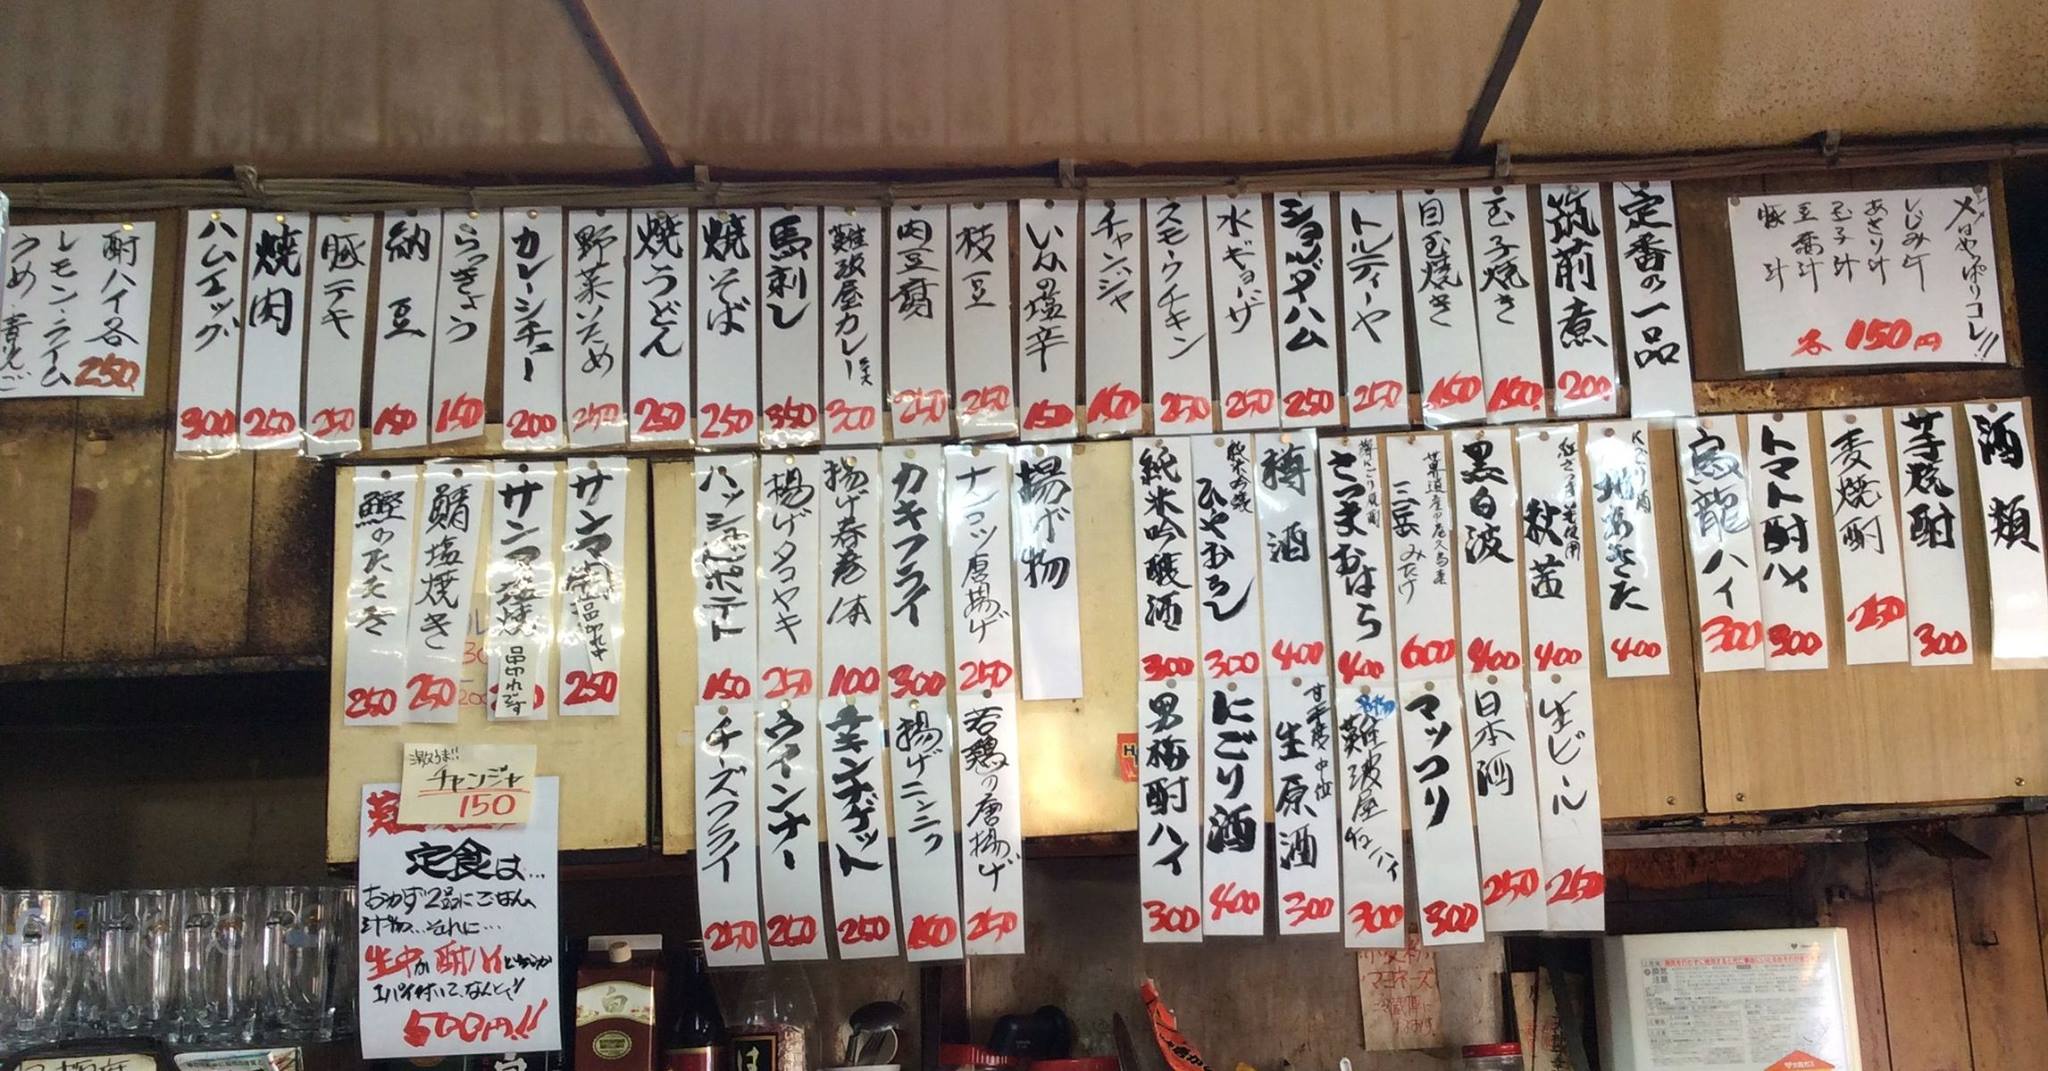 〆はやっぱりコレ!!
しじみ汁
あさり汁
玉子汁
豆腐汁
豚汁
各150円
定番の一品
筑前煮 200
玉子焼き 150
目玉焼き 150
トルティーヤ 250
ショルダーハム 250
水ギョーザ 250
スモークチキン 250
チャンジャ 150
いかの塩辛 150
枝豆 250
肉豆腐 250
難波屋カレー 300
馬刺し 350
焼そば 250
焼うどん 250
野菜いため 250
カレーシチュー 200
らっきょう 150
納豆 150
豚テキ 250
焼肉 250
ハムエッグ 300
酎ハイ各 250
レモン・ライム
うめ 青りんご
酒類
芋焼酎 300
麦焼酎 250
トマト酎ハイ 300
烏龍ハイ 300
にごり酒
地あきた 400
秋茜 400
黒白波 400
世界遺産の屋久島産
三岳 みたけ 600
さつまおはら 400
樽酒 400
純米吟醸
ひやおろし 300
純米吟醸酒 300
生ビール 250
日本酒 250
マッコリ 300
難波屋チューハイ 300
甘辛度 中位
生原酒 300
にごり酒 400
男梅酎ハイ 300
揚げ物
ナンコツ唐揚げ 250
カキフライ 300
揚げ春巻1本 100
揚げタコヤキ 250
ハッシュドポテト 150
若鶏の唐揚げ 250
揚げニンニク 150
チキンナゲット 250
ウインナー 250
チーズフライ 250
サンマ 品切れ 250
サンマ塩焼 品切れです
鯖塩焼き 250
鰹のたたき 250
激うま!!
チャンジャ
150
定食は…
おかず2品にごはん、
汁物…それに…
生中か酎ハイどちらか
1パイ付いて、なんと!!
500円!!
マヨネーズ